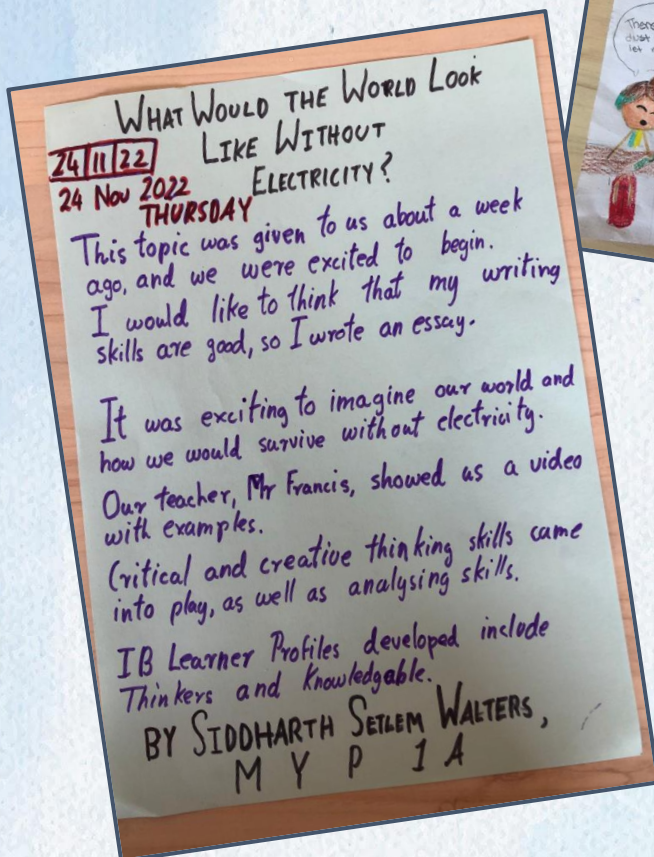 WHAT WOULD THE WORLD LOOK
LIKE WITHOUT
ELECTRICITY?
24 11 22
24 Nov 2022
THURSDAY
This topic was given to us about a week
ago, and we were excited to begin.
I would like to think that my writing
skills are good, so I wrote an essay.
It was exciting to imagine our world and
how we would survive without electricity.
Our teacher, Mr Francis, showed us a video
with examples.
Critical and creative thinking skills came
into play, as well as analysing skills.
IB Learner Profiles developed include
Thinkers and Knowledgable.
BY SIDDHARTH SETLEM WALTERS,
MYP 1A
There
dust
let